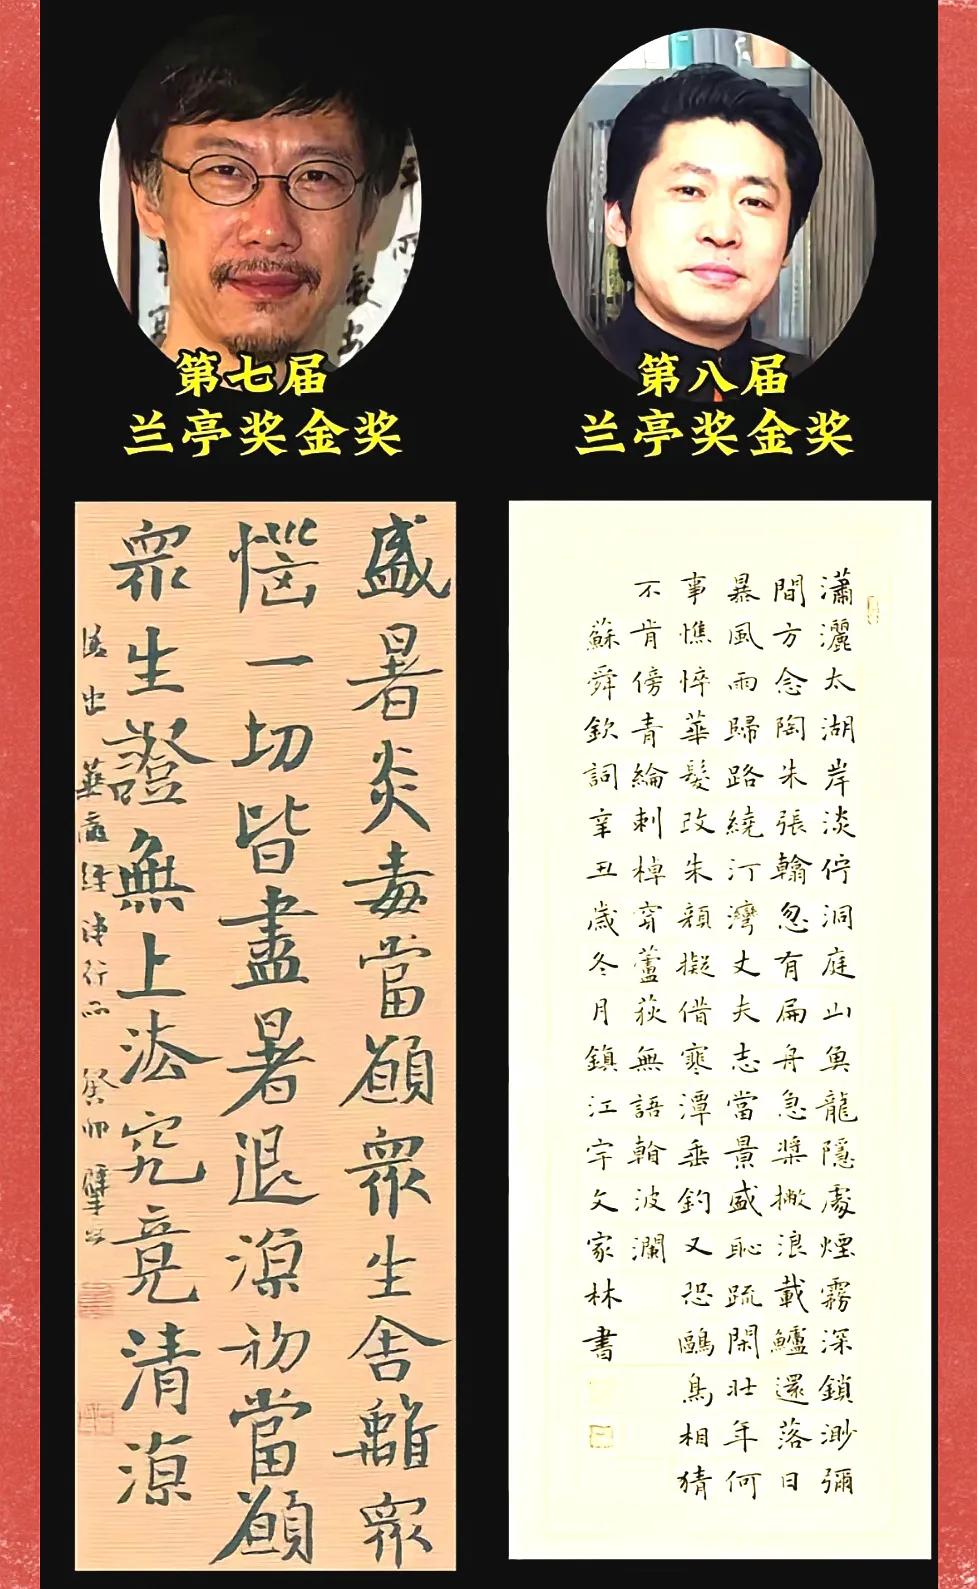 第七届
兰亭奖金奖
第八届
兰亭奖金奖
盛暑炎毒當願衆生舍離衆
惱一切皆盡暑退涼初當願
衆生證無上法究竟清涼
語出華嚴經淨行品 癸卯
瀟灑太湖岸淡佇洞庭山魚龍隱處煙霧深鎖渺彌
間方念陶朱張翰忽有扁舟急槳撇浪載鱸還落日
暴風雨歸路繞汀灣丈夫志當景盛恥疏閑壯年何
事憔悴華髮改朱顏擬借寒潭垂釣又恐鷗鳥相猜
不肯傍青綸刺棹穿蘆荻無語斡波瀾
蘇舜欽詞辛丑歲冬月鎮江宇文家林書